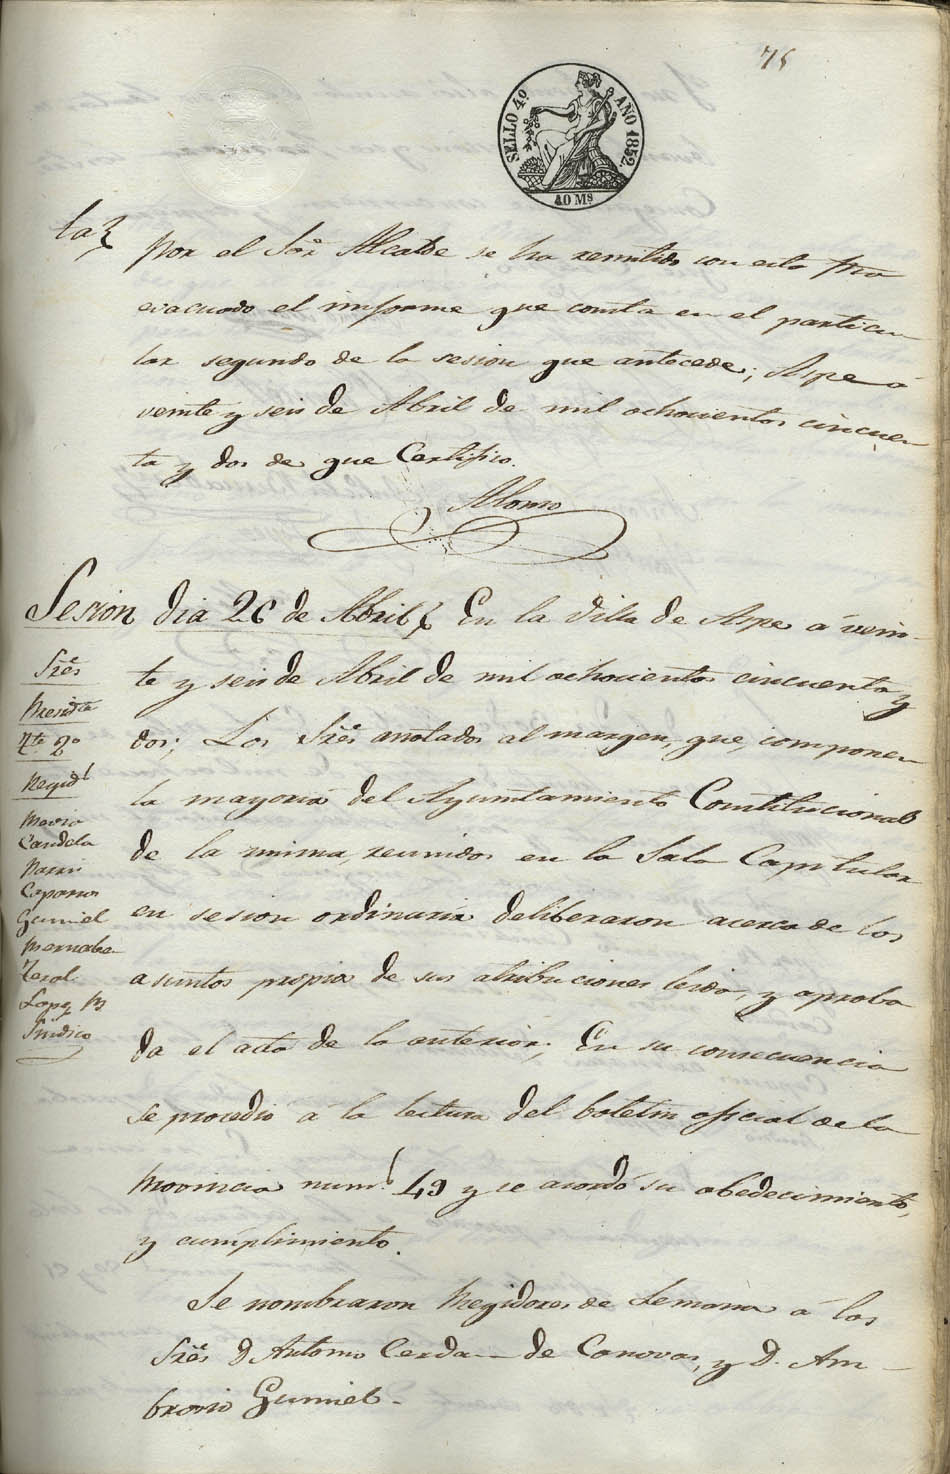 75
SELLO 4º AÑO 1852.
40 Ms
ta}
por el Sor. Alcalde se ha remitido con esta fha
evacuado el informe que consta en el particu
lar segundo de la sesion que antecede; Aspe á
veinte y seis de Abril de mil ochocientos cincuen
ta y dos de que Certifico.
Alonso
Sesion dia 26 de Abril} En la Villa de Aspe á vein-
te y seis de Abril de mil ochocientos cincuenta y
dos; Los Sres. anotados al margen, que, componen
la mayoria del Ayuntamiento Constitucional
de la misma, reunidos en la Sala Capitular
en sesion ordinaria deliberaron acerca de los
asuntos propios de sus atribuciones leida, y aproba
da el acta de la anterior; En su consecuencia
se procedió á la lectura del boletin oficial de la
Provincia num.l 49 y se acordó su obedecimiento,
y cumplimiento.
Se nombraron Regidores de Semana á los
Sres. D Antonio Cerdan de Canovas, y D. Am-
brosio Gumiel.
Sres.
Presidte
Tte 2º
Regid.
Candela
Caparros
Gumiel
Bernabe
Terol
Lopez
Sindico